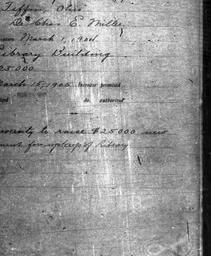 Tiffin, Ohio
Dr Chas E. Miller
March 1, 1904
Library Building
25000
March 15, 1905 Increase promised
do. authorized
to raise $25000 new
ment for upkeep of Library